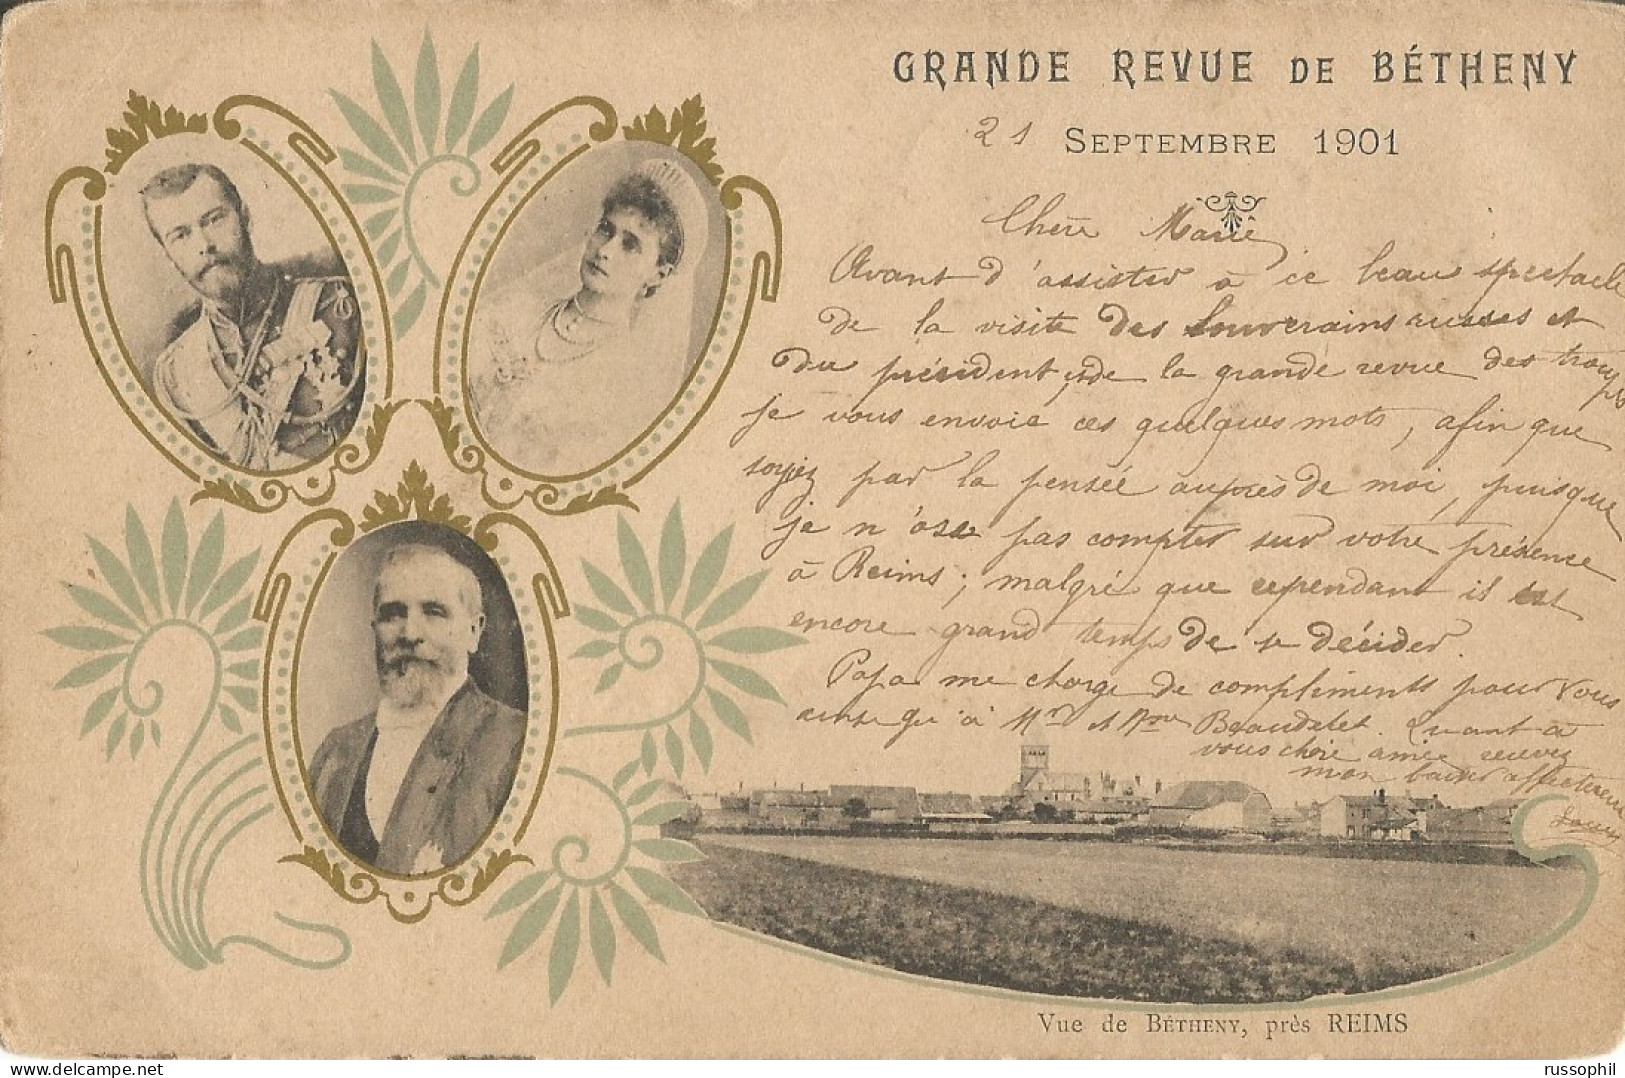 GRANDE REVUE DE BÉTHENY
21 SEPTEMBRE 1901
Chère Marie
Avant d'assister à ce beau spectacle
de la visite des Souverains russes et
du président, et de la grande revue des troupes
je vous envoie ces quelques mots, afin que
soyez par la pensée auprès de moi, puisque
je n'ose pas compter sur votre présence
à Reims; malgré que cependant il est
encore grand temps de se décider.
Papa me charge de compliments pour vous
ainsi qu'à Mr et Mme Beaudelet. Quant à
vous chère amie recevez
mon baiser affectueux
Vue de BÉTHENY, près REIMS
russophil
delcampe.net